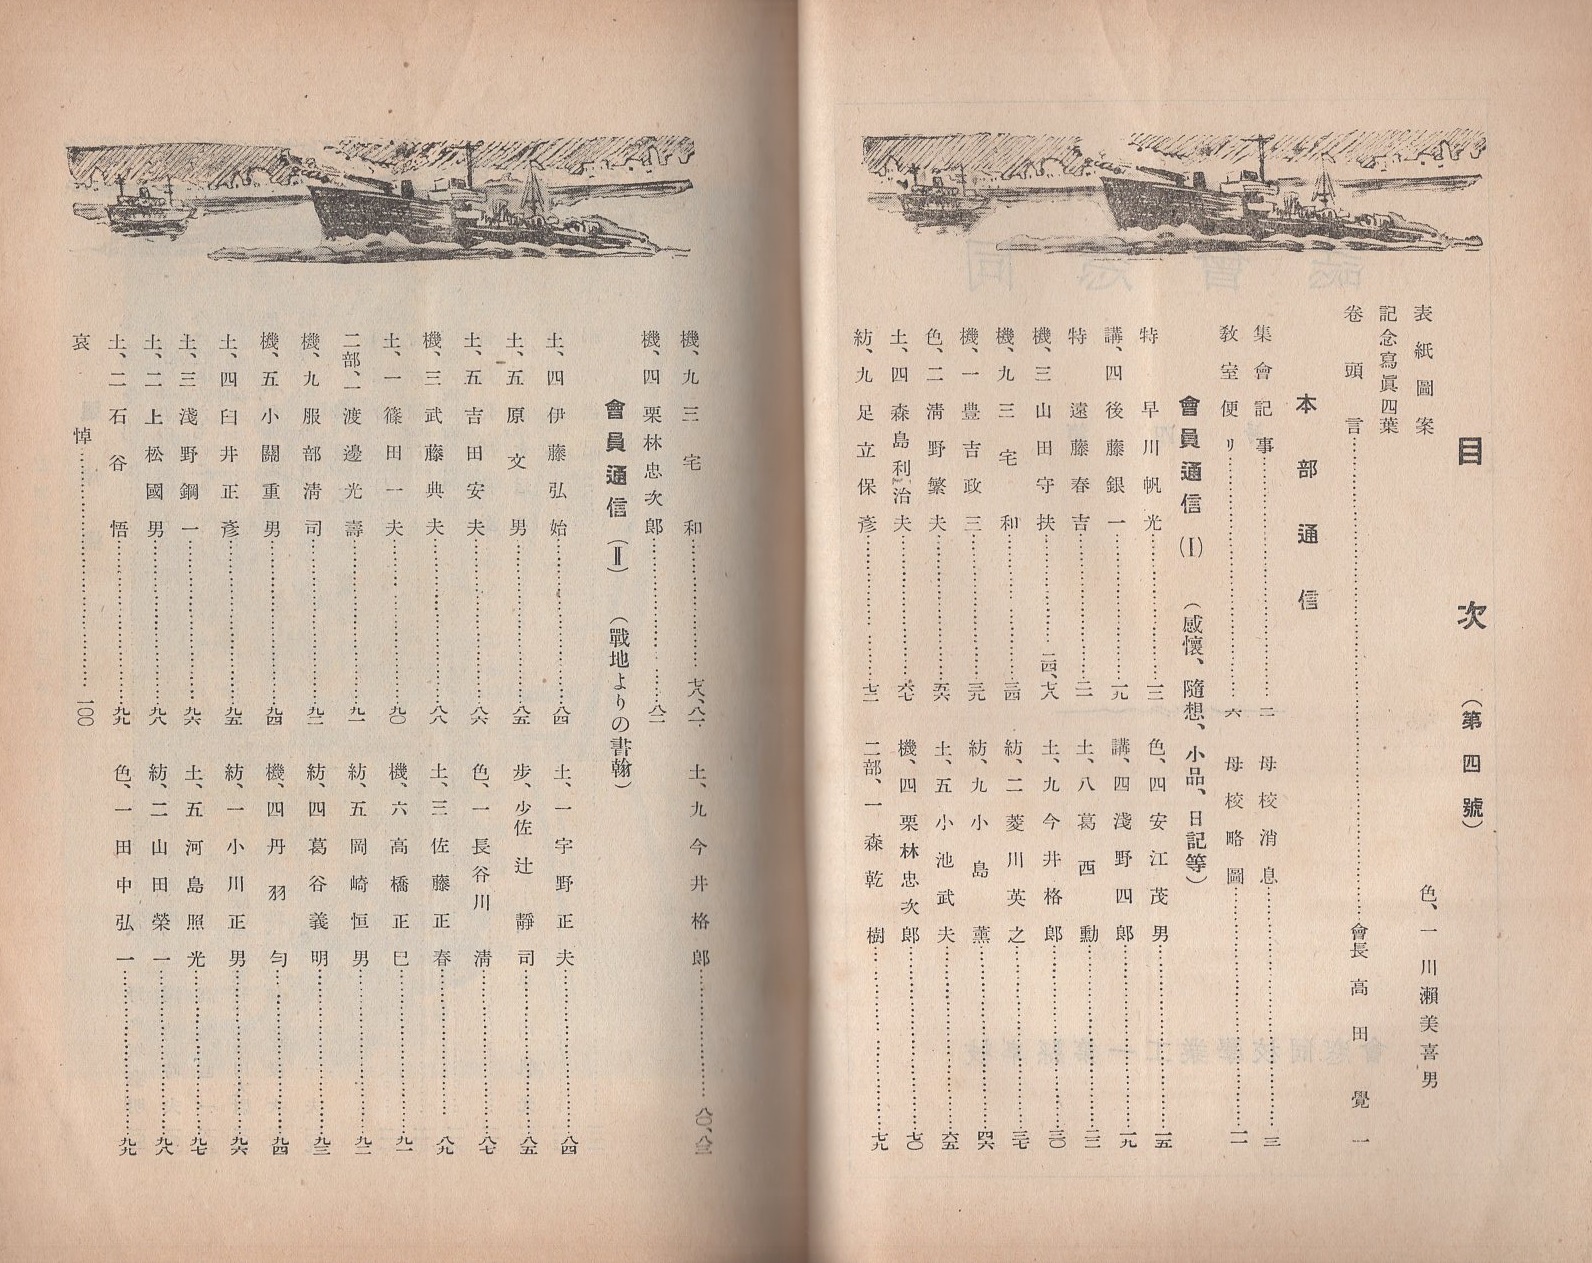 目次（第四號）
表紙圖案 色、一 川瀬美喜男
記念寫眞四葉
卷頭言……會長 高田覺 一
本部通信
集會記事……二
母校消息……三
教室便リ……六
母校略圖……一一
會員通信（Ⅰ）（感懷、隨想、小品、日記等）
特 早川帆光……一三
色、四 安江茂男……一五
講、四 後藤銀一……一九
講、四 淺野四郎……一九
特 遠藤春吉……二一
土、八 葛西勳……二二
機、三 山田守扶……二四、七八
土、九 今井格郎……三〇
機、九 三宅和……三四
紡、二 菱川英之……三七
機、一 豊吉政三……三九
紡、九 小島薫……四六
色、二 淸野繁夫……五六
土、五 小池武夫……六五
土、四 森島利治夫……六七
機、四 栗林忠次郎……七〇
紡、九 足立保彥……七三
二部、一 森乾樹……七九
機、九 三宅和……七八、八一
土、九 今井格郎……八〇、八三
機、四 栗林忠次郎……八二
會員通信（Ⅱ）（戰地よりの書翰）
土、四 伊藤弘始……八四
土、一 宇野正夫……八四
土、五 原文男……八五
步、少佐 辻靜司……八五
土、五 吉田安夫……八六
色、一 長谷川淸……八七
機、三 武藤典夫……八八
土、三 佐藤正春……八九
土、一 篠田一夫……九〇
機、六 高橋正巳……九一
二部、一 渡邊光壽……九一
紡、五 岡崎恒男……九二
機、九 服部淸司……九二
紡、四 葛谷義明……九三
機、五 小關重男……九四
機、四 丹羽勻……九四
土、四 臼井正彥……九五
紡、一 小川正男……九六
土、三 淺野鋼一……九六
土、五 河島照光……九七
土、二 上松國男……九八
紡、二 山田榮一……九八
土、二 石谷悟……九九
色、一 田中弘一……九九
哀悼……一〇〇